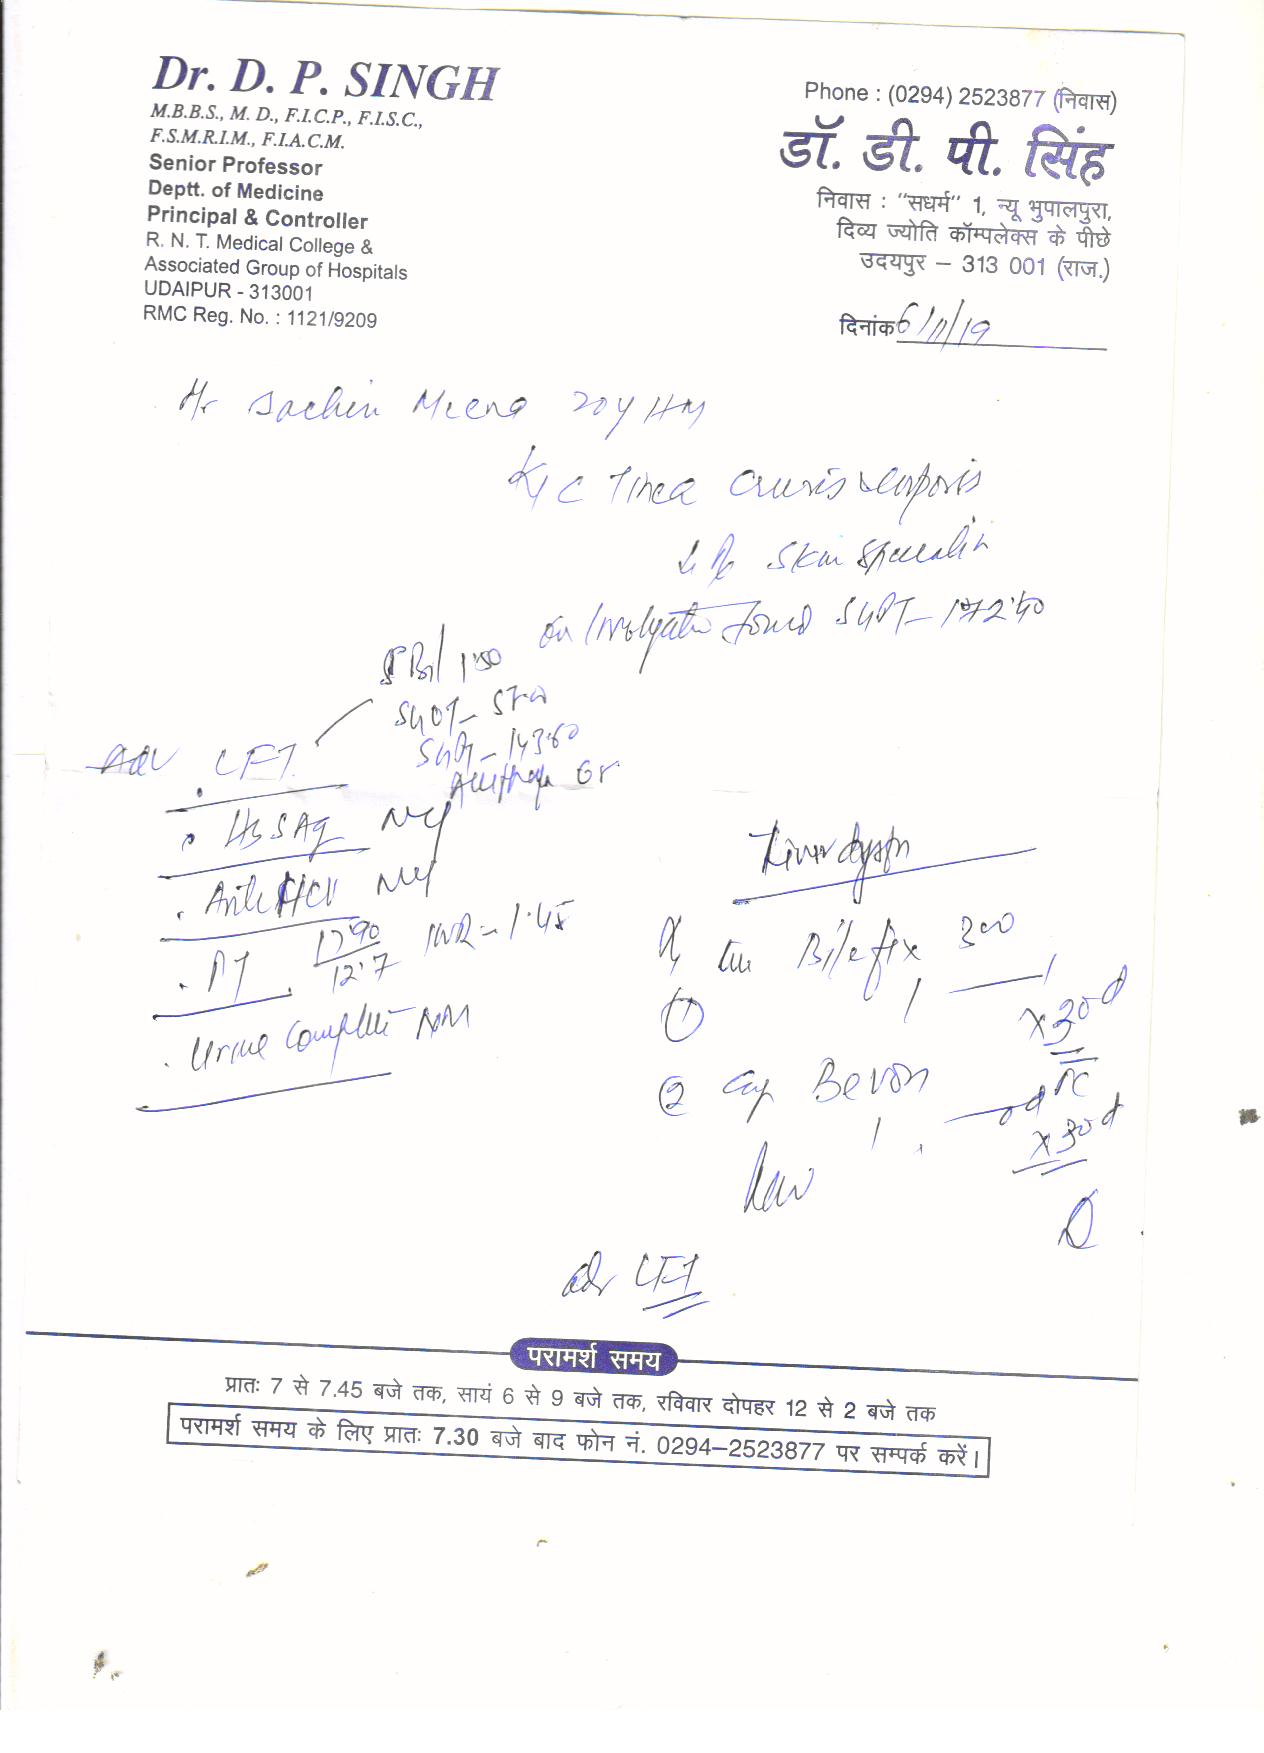 Dr. D. P. SINGH
M.B.B.S., M. D., F.I.C.P., F.I.S.C.,
F.S.M.R.I.M., F.I.A.C.M.
Senior Professor
Deptt. of Medicine
Principal & Controller
R. N. T. Medical College &
Associated Group of Hospitals
UDAIPUR - 313001
RMC Reg. No. : 1121/9209
Phone : (0294) 2523877 (निवास)
डॉ. डी. पी. सिंह
निवास : "सधर्म" 1, न्यू भुपालपुरा,
दिव्य ज्योति कॉम्पलेक्स के पीछे
उदयपुर – 313 001 (राज.)
दिनांक 6/11/19
Mr Sachin Meena 20y HM
K/C Tinea Cruris & Corporis
Skin Specialist
on found SGPT- 172.40
S Bil 1.50
SGOT-
SGPT- 143.60
Adv LFT
HBSAg
Anti HCV
PT 17.90/12.7 INR - 1.45
Urine Complete
Liver dysfn
Bilefix 300
① 1 1
x 30 d
② Cap Bevon
1 od PC
x 30 d
adv LFT
परामर्श समय
प्रातः 7 से 7.45 बजे तक, सायं 6 से 9 बजे तक, रविवार दोपहर 12 से 2 बजे तक
परामर्श समय के लिए प्रातः 7.30 बजे बाद फोन नं. 0294–2523877 पर सम्पर्क करें।